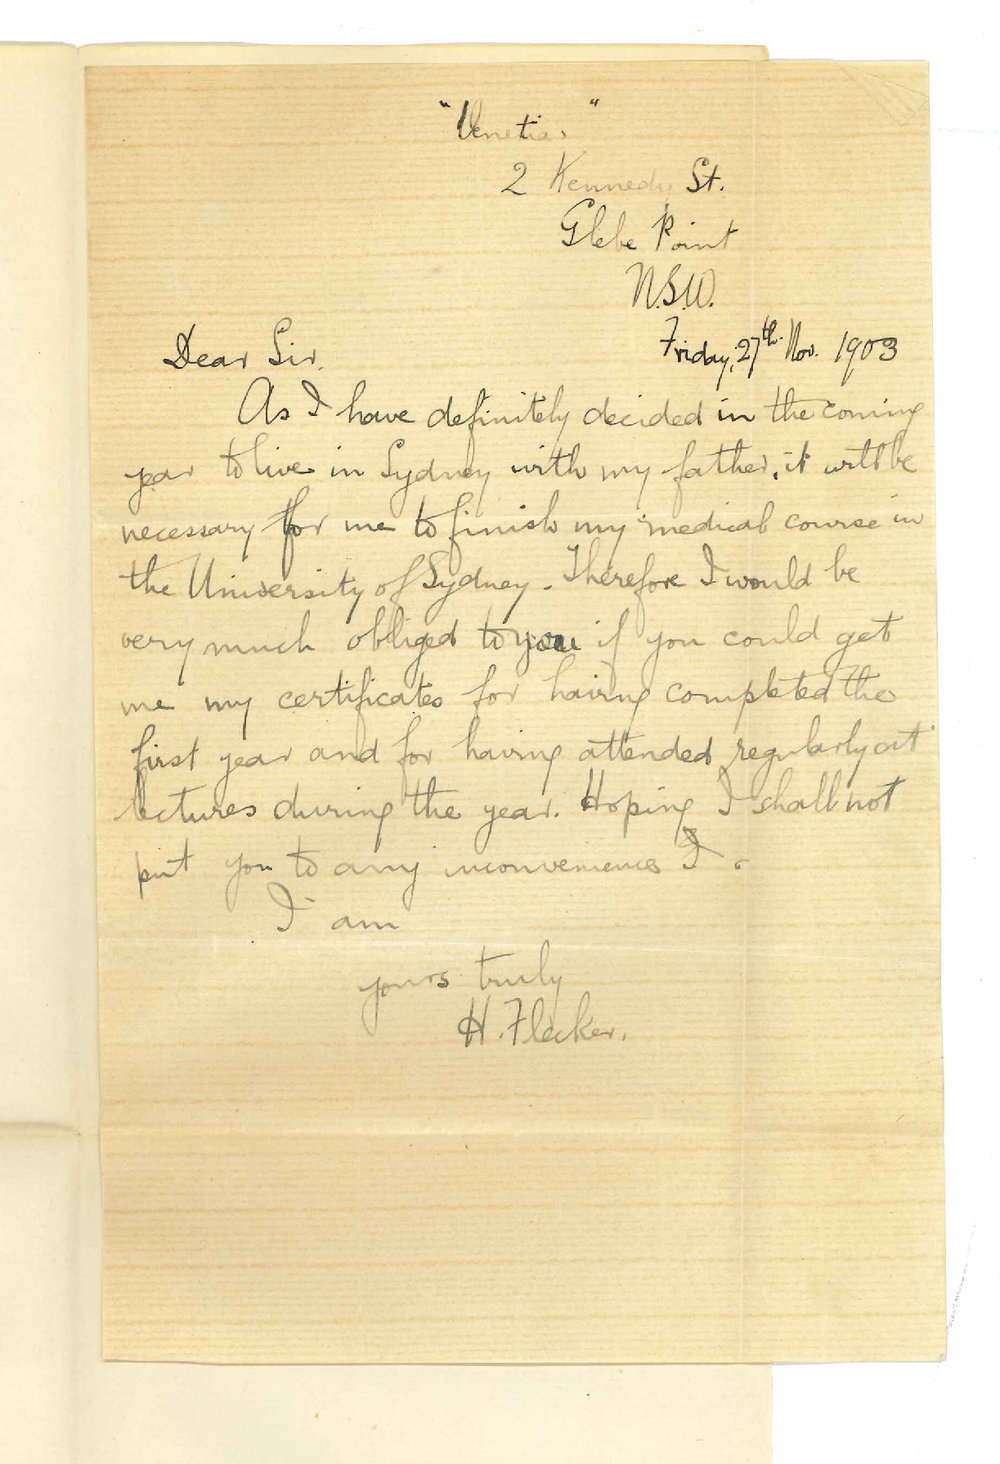 "Venetia"
2 Kennedy St.
Glebe Point
N.S.W.
Friday, 27th. Nov. 1903
Dear Sir,
As I have definitely decided in the coming
year to live in Sydney with my father, it will be
necessary for me to finish my medical course in
the University of Sydney. Therefore I would be
very much obliged to you if you could get
me my certificates for having completed the
first year and for having attended regularly at
lectures during the year. Hoping I shall not
put you to any inconvenience I.
I am
yours truly
H. Flecker.